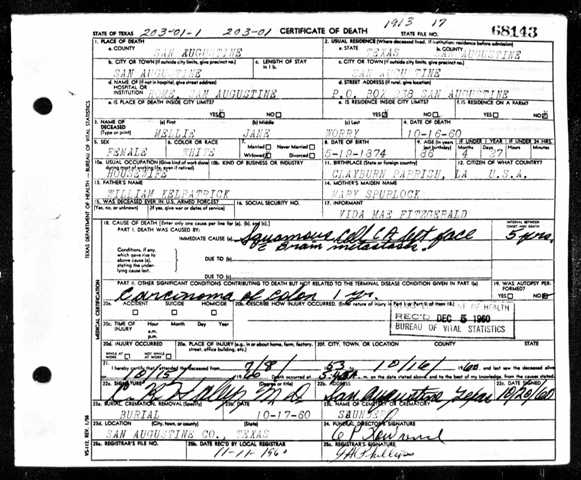 1913 17
STATE OF TEXAS 203-01-1 203-01 CERTIFICATE OF DEATH STATE FILE NO. 68143
1. PLACE OF DEATH
a. COUNTY
SAN AUGUSTINE
2. USUAL RESIDENCE (Where deceased lived. If institution: residence before admission)
a. STATE TEXAS b. COUNTY SAN AUGUSTINE
b. CITY OR TOWN (If outside city limits, give precinct no.)
SAN AUGUSTINE
c. LENGTH OF STAY
in 1 b.
c. CITY OR TOWN (If outside city limits, give precinct no.)
SAN AUGUSTINE
d. NAME OF (If not in hospital, give street address)
HOSPITAL OR
INSTITUTION HOME, SAN AUGUSTINE
d. STREET ADDRESS (If rural, give location)
P.O. BOX 278 SAN AUGUSTINE
e. IS PLACE OF DEATH INSIDE CITY LIMITS?
YES NO
e. IS RESIDENCE INSIDE CITY LIMITS?
YES NO
f. IS RESIDENCE ON A FARM?
YES NO
3. NAME OF
DECEASED
(Type or print)
(a) First
(b) Middle
JANE
(c) Last
4. DATE OF DEATH
10-16-60
5. SEX
FEMALE
6. COLOR OR RACE
WHITE
7. Married Never Married
Widowed Divorced
8. DATE OF BIRTH
5-19-1874
9. AGE (In years
last birthday)
86
IF UNDER 1 YEAR
Months Days
4 27
IF UNDER 24 HRS.
Hours Min.
10a. USUAL OCCUPATION (Give kind of work done
during most of working life, even if retired)
HOUSEWIFE
10b. KIND OF BUSINESS OR INDUSTRY
11. BIRTHPLACE (State or foreign country)
CLAYBURN PARRISH, LA
12. CITIZEN OF WHAT COUNTRY?
U.S.A.
13. FATHER'S NAME
WILLIAM KELPATRICK
14. MOTHER'S MAIDEN NAME
MARY SPURLOCK
15. WAS DECEASED EVER IN U.S. ARMED FORCES?
(Yes, no, or unknown) (If yes, give war or dates of service)
16. SOCIAL SECURITY NO.
17. INFORMANT
VIDA MAE FITZGERALD
18. CAUSE OF DEATH [Enter only one cause per line for (a), (b), and (c).]
PART I. DEATH WAS CAUSED BY:
IMMEDIATE CAUSE (a) Squamous Cell CA left face
c Brain metastases
INTERVAL BETWEEN
ONSET AND DEATH
5 yrs.
Conditions, if any,
which gave rise to
above cause (a),
stating the under-
lying cause last.
DUE TO (b)
DUE TO (c)
PART II. OTHER SIGNIFICANT CONDITIONS CONTRIBUTING TO DEATH BUT NOT RELATED TO THE TERMINAL DISEASE CONDITION GIVEN IN PART I(a)
Carcinoma of Colon 1 yr.
19. WAS AUTOPSY PERFORMED?
YES NO
20a. ACCIDENT SUICIDE HOMICIDE
20b. DESCRIBE HOW INJURY OCCURRED. (Enter nature of injury in Part I or Part II of item 18.)
OF HEALTH
REC'D DEC 5 1960
BUREAU OF VITAL STATISTICS
20c. TIME OF
INJURY
Hour Month Day Year
a.m.
p.m.
20d. INJURY OCCURRED
WHILE AT WORK NOT WHILE AT WORK
20e. PLACE OF INJURY (e.g. in or about home, farm, factory,
street, office building, etc.)
20f. CITY, TOWN, OR LOCATION COUNTY STATE
21. I hereby certify that I attended the deceased from 7/8/ 53 to 10/16/ 1960 and last saw the deceased alive
on 10/15 1960. Death occurred at m., on the date stated above; and to the best of my knowledge, from the causes stated.
22a. SIGNATURE (Degree or title)
M.D.
22b. ADDRESS
San Augustine, Texas
22c. DATE SIGNED
10/20/60
23a. BURIAL, CREMATION, REMOVAL (Specify)
BURIAL
23b. DATE
10-17-60
23c. NAME OF CEMETERY OR CREMATORY
23d. LOCATION (City, town, or county) (State)
SAN AUGUSTINE CO., TEXAS
24. FUNERAL DIRECTOR'S SIGNATURE
25a. REGISTRAR'S FILE NO.
25b. DATE REC'D BY LOCAL REGISTRAR
11-11-1960
25c. REGISTRAR'S SIGNATURE
TEXAS DEPARTMENT OF HEALTH — BUREAU OF VITAL STATISTICS
MEDICAL CERTIFICATION